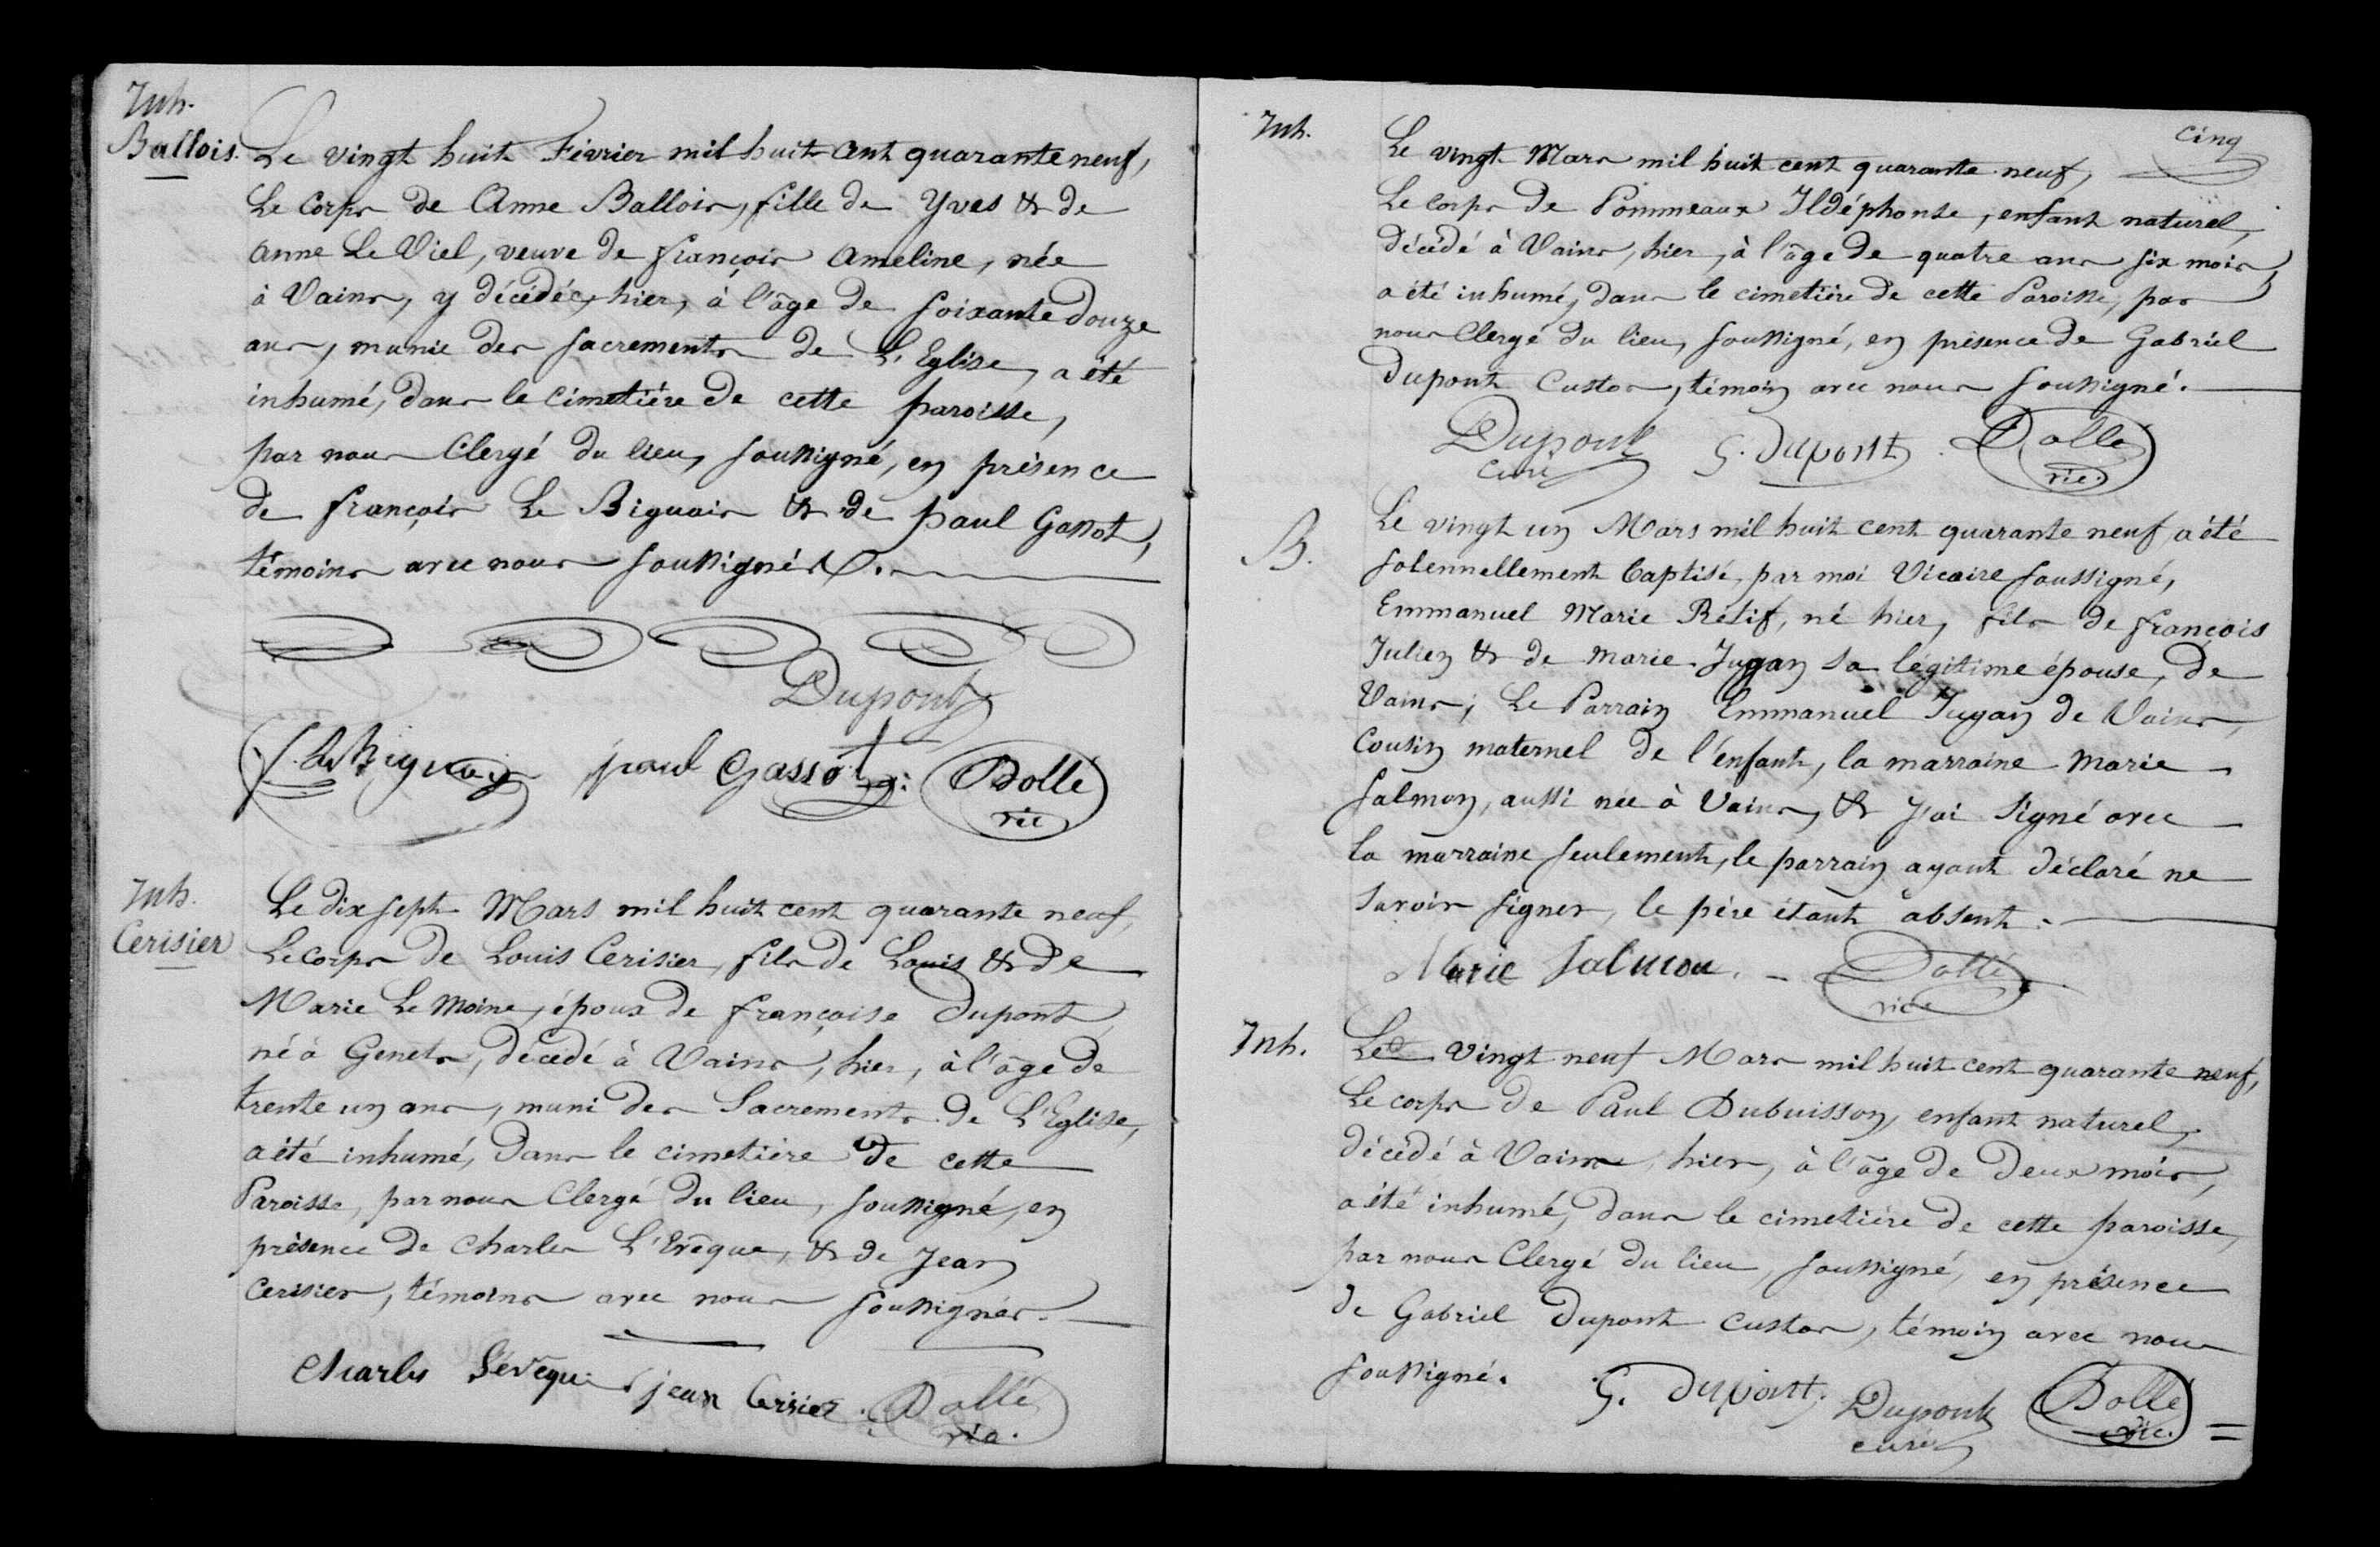 Inh.
Ballois.
Le vingt huit Février mil huit cent quarante neuf,
Le corps de Anne Ballois, fille de Yves & de
Anne Le Viel, veuve de françois Ameline, née
à Vains, y décédée, hier, à l'âge de soixante douze
ans, munie des sacrements de L'Eglise, a été
inhumé, dans le cimetière de cette paroisse,
par nous Clergé du lieu, soussigné, en présence
de françois Le Biguais & de paul Gassot,
témoins avec nous soussignés.
Dupont
paul Gassot
Dollé
vic
Inh.
Cerisier
Le dix sept Mars mil huit cent quarante neuf,
Le corps de Louis Cerisier, fils de Louis & de
Marie Le Moine, époux de françoise Dupont,
né à Genets, décédé à Vains, hier, à l'âge de
trente un ans, muni des Sacrements de L'Eglise,
a été inhumé, dans le cimetière de cette
Paroisse, par nous Clergé du lieu, soussigné, en
présence de Charles L'Evêque, & de Jean
Cerisier, témoins avec nous soussignés.
Charles Lévêque jean Cerisier. Dollé
vic.
cinq
Inh.
Le vingt Mars mil huit cent quarante neuf,
Le corps de Pommeaux Ildéphonse, enfant naturel,
décédé à Vains, hier, à l'âge de quatre ans six mois,
a été inhumé, dans le cimetière de cette Paroisse, par
nous Clergé du lieu, soussigné, en présence de Gabriel
Dupont Custos, témoin avec nous soussigné.
Dupont G. Dupont Dollé
Curé vic.
B.
Le vingt un Mars mil huit cent quarante neuf a été
solennellement baptisé, par moi Vicaire soussigné,
Emmanuel Marie Rétif, né hier, fils de françois
Julien & de Marie Jugan sa légitime épouse, de
Vains; Le Parrain Emmanuel Jugan de Vains,
Cousin maternel de l'enfant, la marraine Marie
Salmon, aussi née à Vains, & j'ai signé avec
la marraine seulement, le parrain ayant déclaré ne
savoir signer, le père étant absent.
Marie Salmon. Dollé
vice
Inh.
Le vingt neuf Mars mil huit cent quarante neuf,
Le corps de Paul Dubuisson, enfant naturel,
décédé à Vains, hier, à l'âge de deux mois,
a été inhumé, dans le cimetière de cette paroisse,
par nous Clergé du lieu, soussigné, en présence
de Gabriel Dupont Custos, témoin avec nous
soussigné. G. Dupont. Dupont Dollé
curé vic.